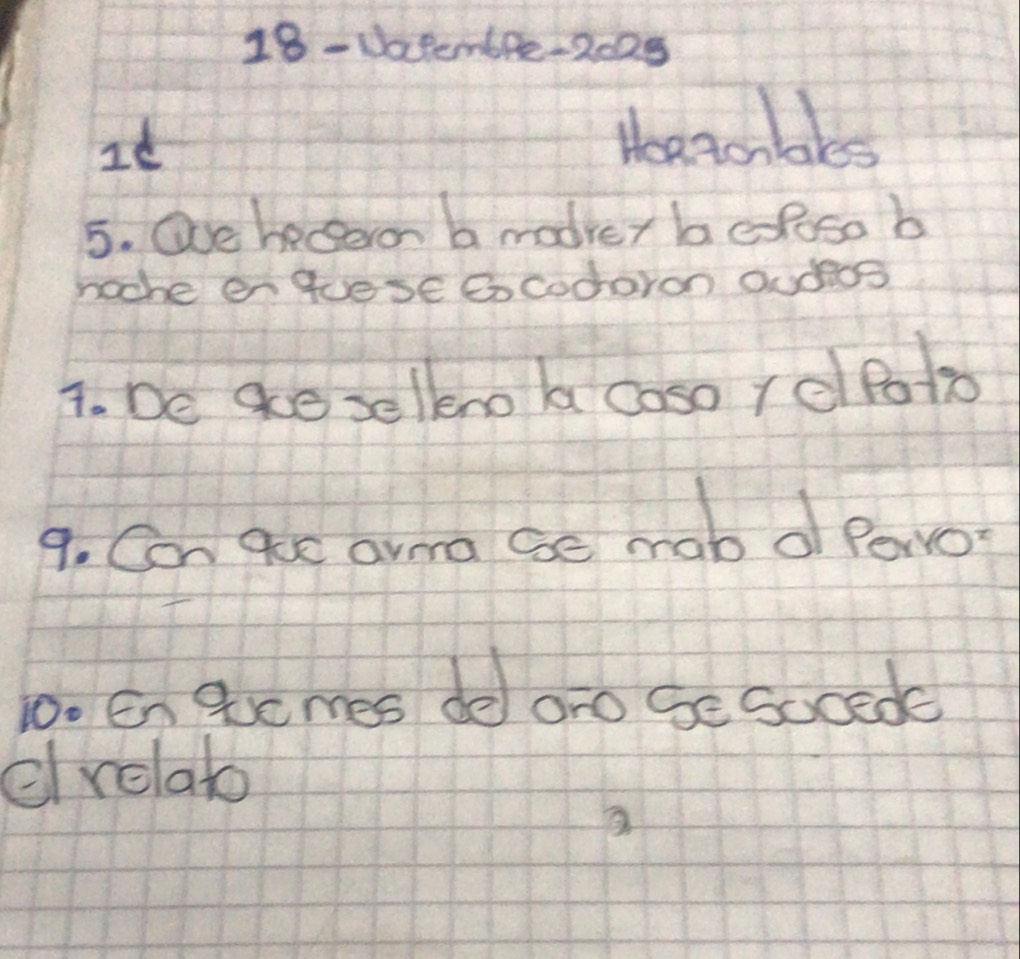 18 - Noviembre - 2025
1d Horizontales
5. Que hicieron la madre y la esposa la
noche en que se escucharon audios
7. De que se lleno la casa y el Patio
9. Con que arma se mato al Perro
10. En que mes del año se sucede
el relato